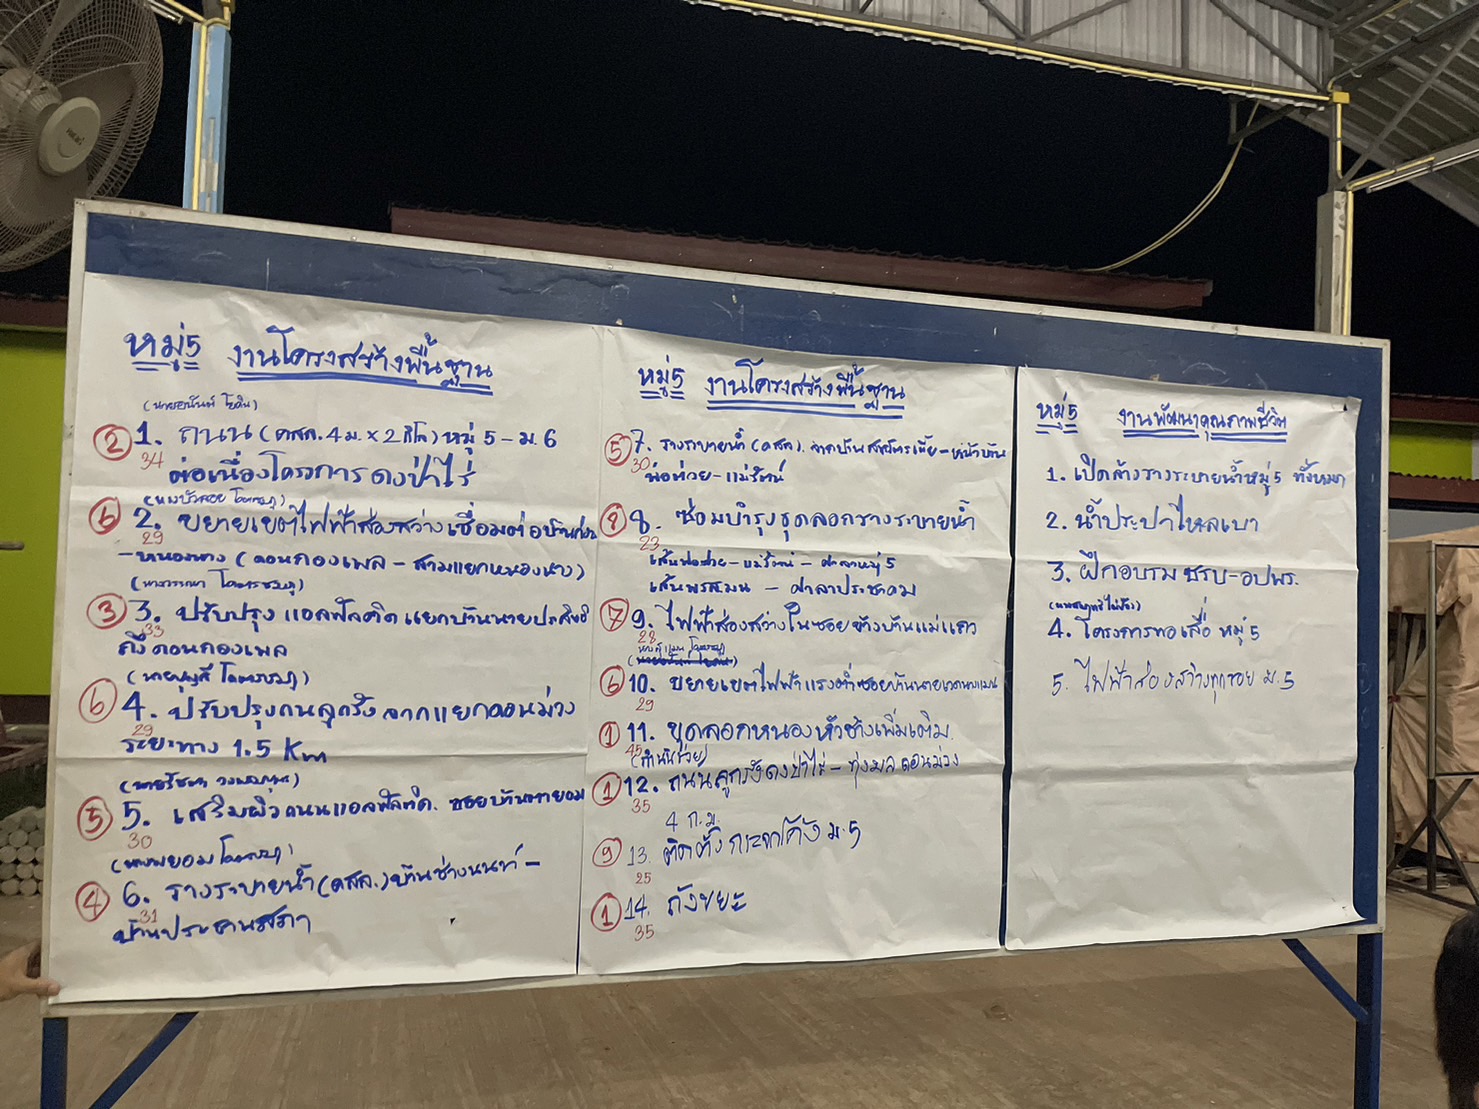 หมู่ 5 งานโครงสร้างพื้นฐาน
② 1. ถนน (คสล. 4 ม. × 2 กิโล) หมู่ 5 - ม. 6
34
ต่อเนื่องโครงการ ดงป่าไร่
⑥ 2. ขยายเขตไฟฟ้าส่องสว่างเชื่อมต่อ
29
- หนองนาง (ดอนกองเพล - สามแยกหนองนาง)
③ 3. ปรับปรุง แอลฟัลติค แยกบ้านนายประสิทธิ์
33
ถึง ดอนกองเพล
⑥ 4. ปรับปรุงถนนลูกรัง จากแยกดอนม่วง
29
ระยะทาง 1.5 Km
⑤ 5. เสริมผิวถนนแอลฟัลติค. ซอยบ้านตายอม
30
④ 6. รางระบายน้ำ (คสล.) บ้านช่างนนท์ -
31
บ้านประธานสภา
หมู่ 5 งานโครงสร้างพื้นฐาน
⑤ 7. รางระบายน้ำ (คสล.)
30
พ่อห่วย - แม่รัตน์
⑧ 8. ซ่อมบำรุงขุดลอกรางระบายน้ำ
23
เส้นพ่อห่วย - แม่รัตน์ - ศาลาหมู่ 5
เส้นพรสมน - ศาลาประชาคม
⑦ 9. ไฟฟ้าส่องสว่างในซอยข้างบ้านแม่แถว
28
⑥ 10. ขยายเขตไฟฟ้าแรงต่ำซอยบ้านนาย
29
① 11. ขุดลอกหนองหัวช้างเพิ่มเติม.
45
① 12. ถนนลูกรังดงป่าไร่ - ทุ่งมล ดอนม่วง
35
4 ก.ม.
⑨ 13. ติดตั้ง กระจกโค้ง ม.5
25
① 14. ถังขยะ
35
หมู่ 5 งานพัฒนาคุณภาพชีวิต
1. เปิดล้างรางระบายน้ำหมู่ 5 ทั้งหมด
2. น้ำประปาไหลเบา
3. ฝึกอบรม ชรบ - อปพร.
4. โครงการทอเสื่อ หมู่ 5
5. ไฟฟ้าส่องสว่างทุกซอย ม.5